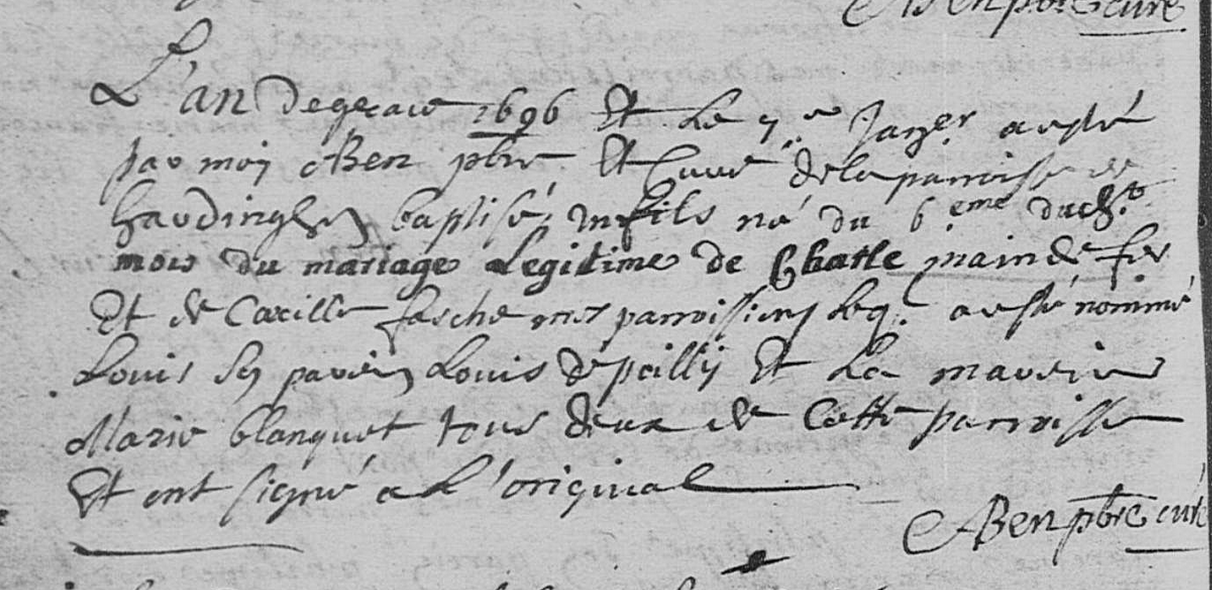 ABen pbre curé
L'an de grace 1696 Et Le 7.me Janer a esté
par moy ABen pbre Et Curé de la parroisse de
baptisé un fils né du 6 eme dudt
mois du mariage Legitime de Charle maindefer
Et de Carille fasche mes parroissiens leql a esté nommé
Louis son parein Louis depoilly Et La mareine
Marie blanquet tous deux de Cette parroisse
Et ont signé a L'original
ABen pbre curé